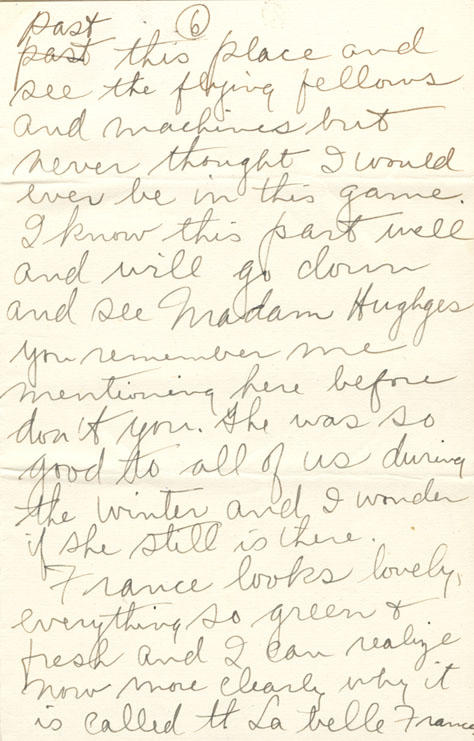 past 6
past this place and
see the flying fellows
and machines but
never thought I would
ever be in this game.
I know this part well
and will go down
and see Madam Hughges
you remember me
mentioning here before
don't you. She was so
good to all of us during
the winter and I wonder
if she still is there.
France looks lovely,
everything so green &
fresh and I can realize
now more clearly why it
is called tt La belle France